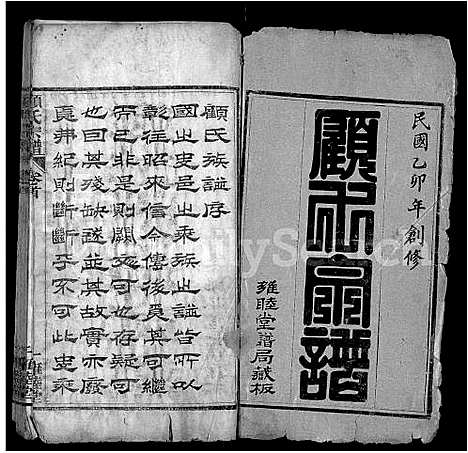 民國乙卯年創修
顧氏宗譜
雍睦堂譜局藏板
顧氏族譜序
國之史邑之乘族之譜皆所以
彰往昭來信今傳後爲其可繼
而已非是則闕之也存疑可
也因其殘缺遂並其故實亦廢
夏弗紀則斷斷乎不可此史乘
顧氏宗譜
卷首
FamilySearch